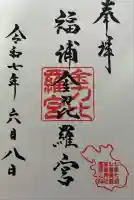 奉拝
福浦金比羅宮
金刀比羅宮
令和七年六月八日